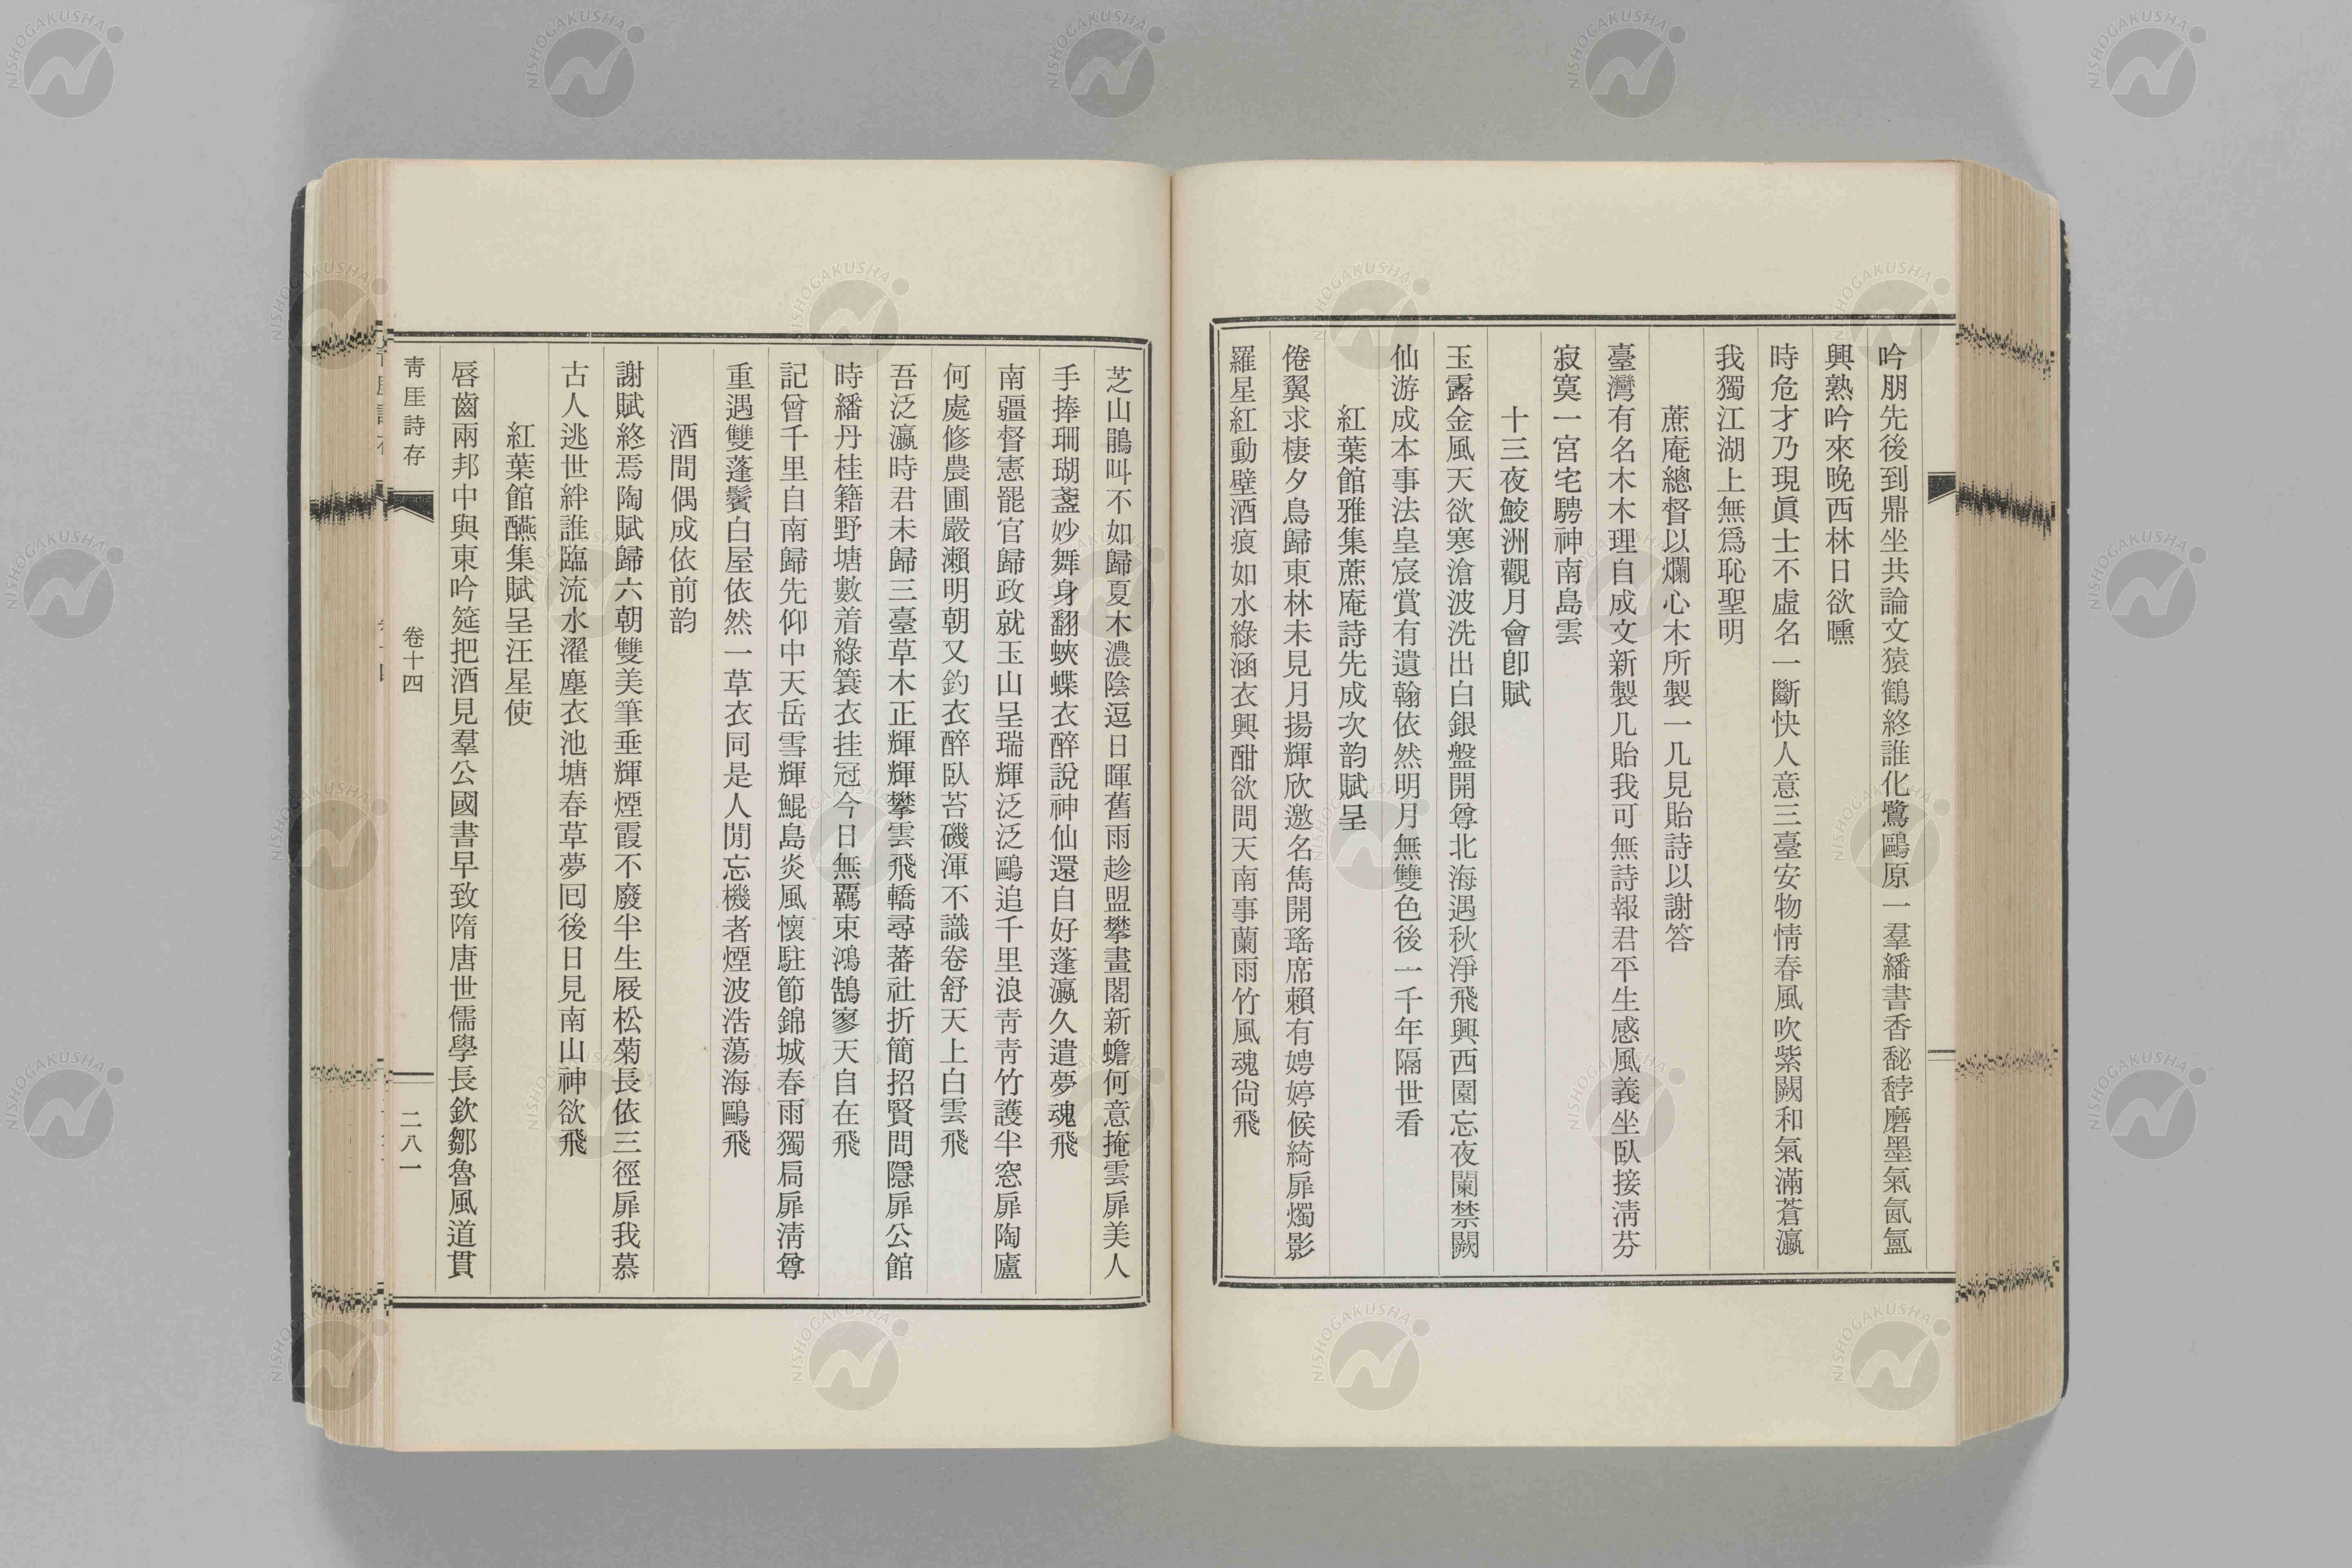 吟朋先後到鼎坐共論文猿鶴終誰化鷺鷗原一羣繙書香馝馞磨墨氣氤氳
興熟吟來晚西林日欲曛
時危才乃現眞士不虛名一斷快人意三臺安物情春風吹紫闕和氣滿蒼瀛
我獨江湖上無爲恥聖明
蔗庵總督以爛心木所製一几見貽詩以謝答
臺灣有名木木理自成文新製几貽我可無詩報君平生感風義坐臥接淸芬
寂寞一宮宅騁神南島雲
十三夜鮫洲觀月會卽賦
玉露金風天欲寒滄波洗出白銀盤開尊北海遇秋淨飛興西園忘夜闌禁闕
仙游成本事法皇宸賞有遺翰依然明月無雙色後一千年隔世看
紅葉館雅集蔗庵詩先成次韵賦呈
倦翼求棲夕鳥歸東林未見月揚輝欣邀名雋開瑤席賴有娉婷候綺扉燭影
羅星紅動壁酒痕如水綠涵衣興酣欲問天南事蘭雨竹風魂尙飛
芝山鵑叫不如歸夏木濃陰逗日暉舊雨趁盟攀畫閣新蟾何意掩雲扉美人
手捧珊瑚盞妙舞身翻蛺蝶衣醉說神仙還自好蓬瀛久遣夢魂飛
南疆督憲罷官歸政就玉山呈瑞輝泛泛鷗追千里浪靑靑竹護半窓扉陶廬
何處修農圃嚴瀨明朝又釣衣醉臥苔磯渾不識卷舒天上白雲飛
吾泛瀛時君未歸三臺草木正輝輝攀雲飛轎尋蕃社折簡招賢問隱扉公館
時繙丹桂籍野塘數着綠簑衣挂冠今日無羈束鴻鵠寥天自在飛
記曾千里自南歸先仰中天岳雪輝鯤島炎風懷駐節錦城春雨獨扃扉淸尊
重遇雙蓬鬢白屋依然一草衣同是人閒忘機者煙波浩蕩海鷗飛
酒間偶成依前韵
謝賦終焉陶賦歸六朝雙美筆垂輝煙霞不廢半生屐松菊長依三徑扉我慕
古人逃世絆誰臨流水濯塵衣池塘春草夢囘後日見南山神欲飛
紅葉館醼集賦呈汪星使
唇齒兩邦中與東吟筵把酒見羣公國書早致隋唐世儒學長欽鄒魯風道貫
靑厓詩存
卷十四
二八一